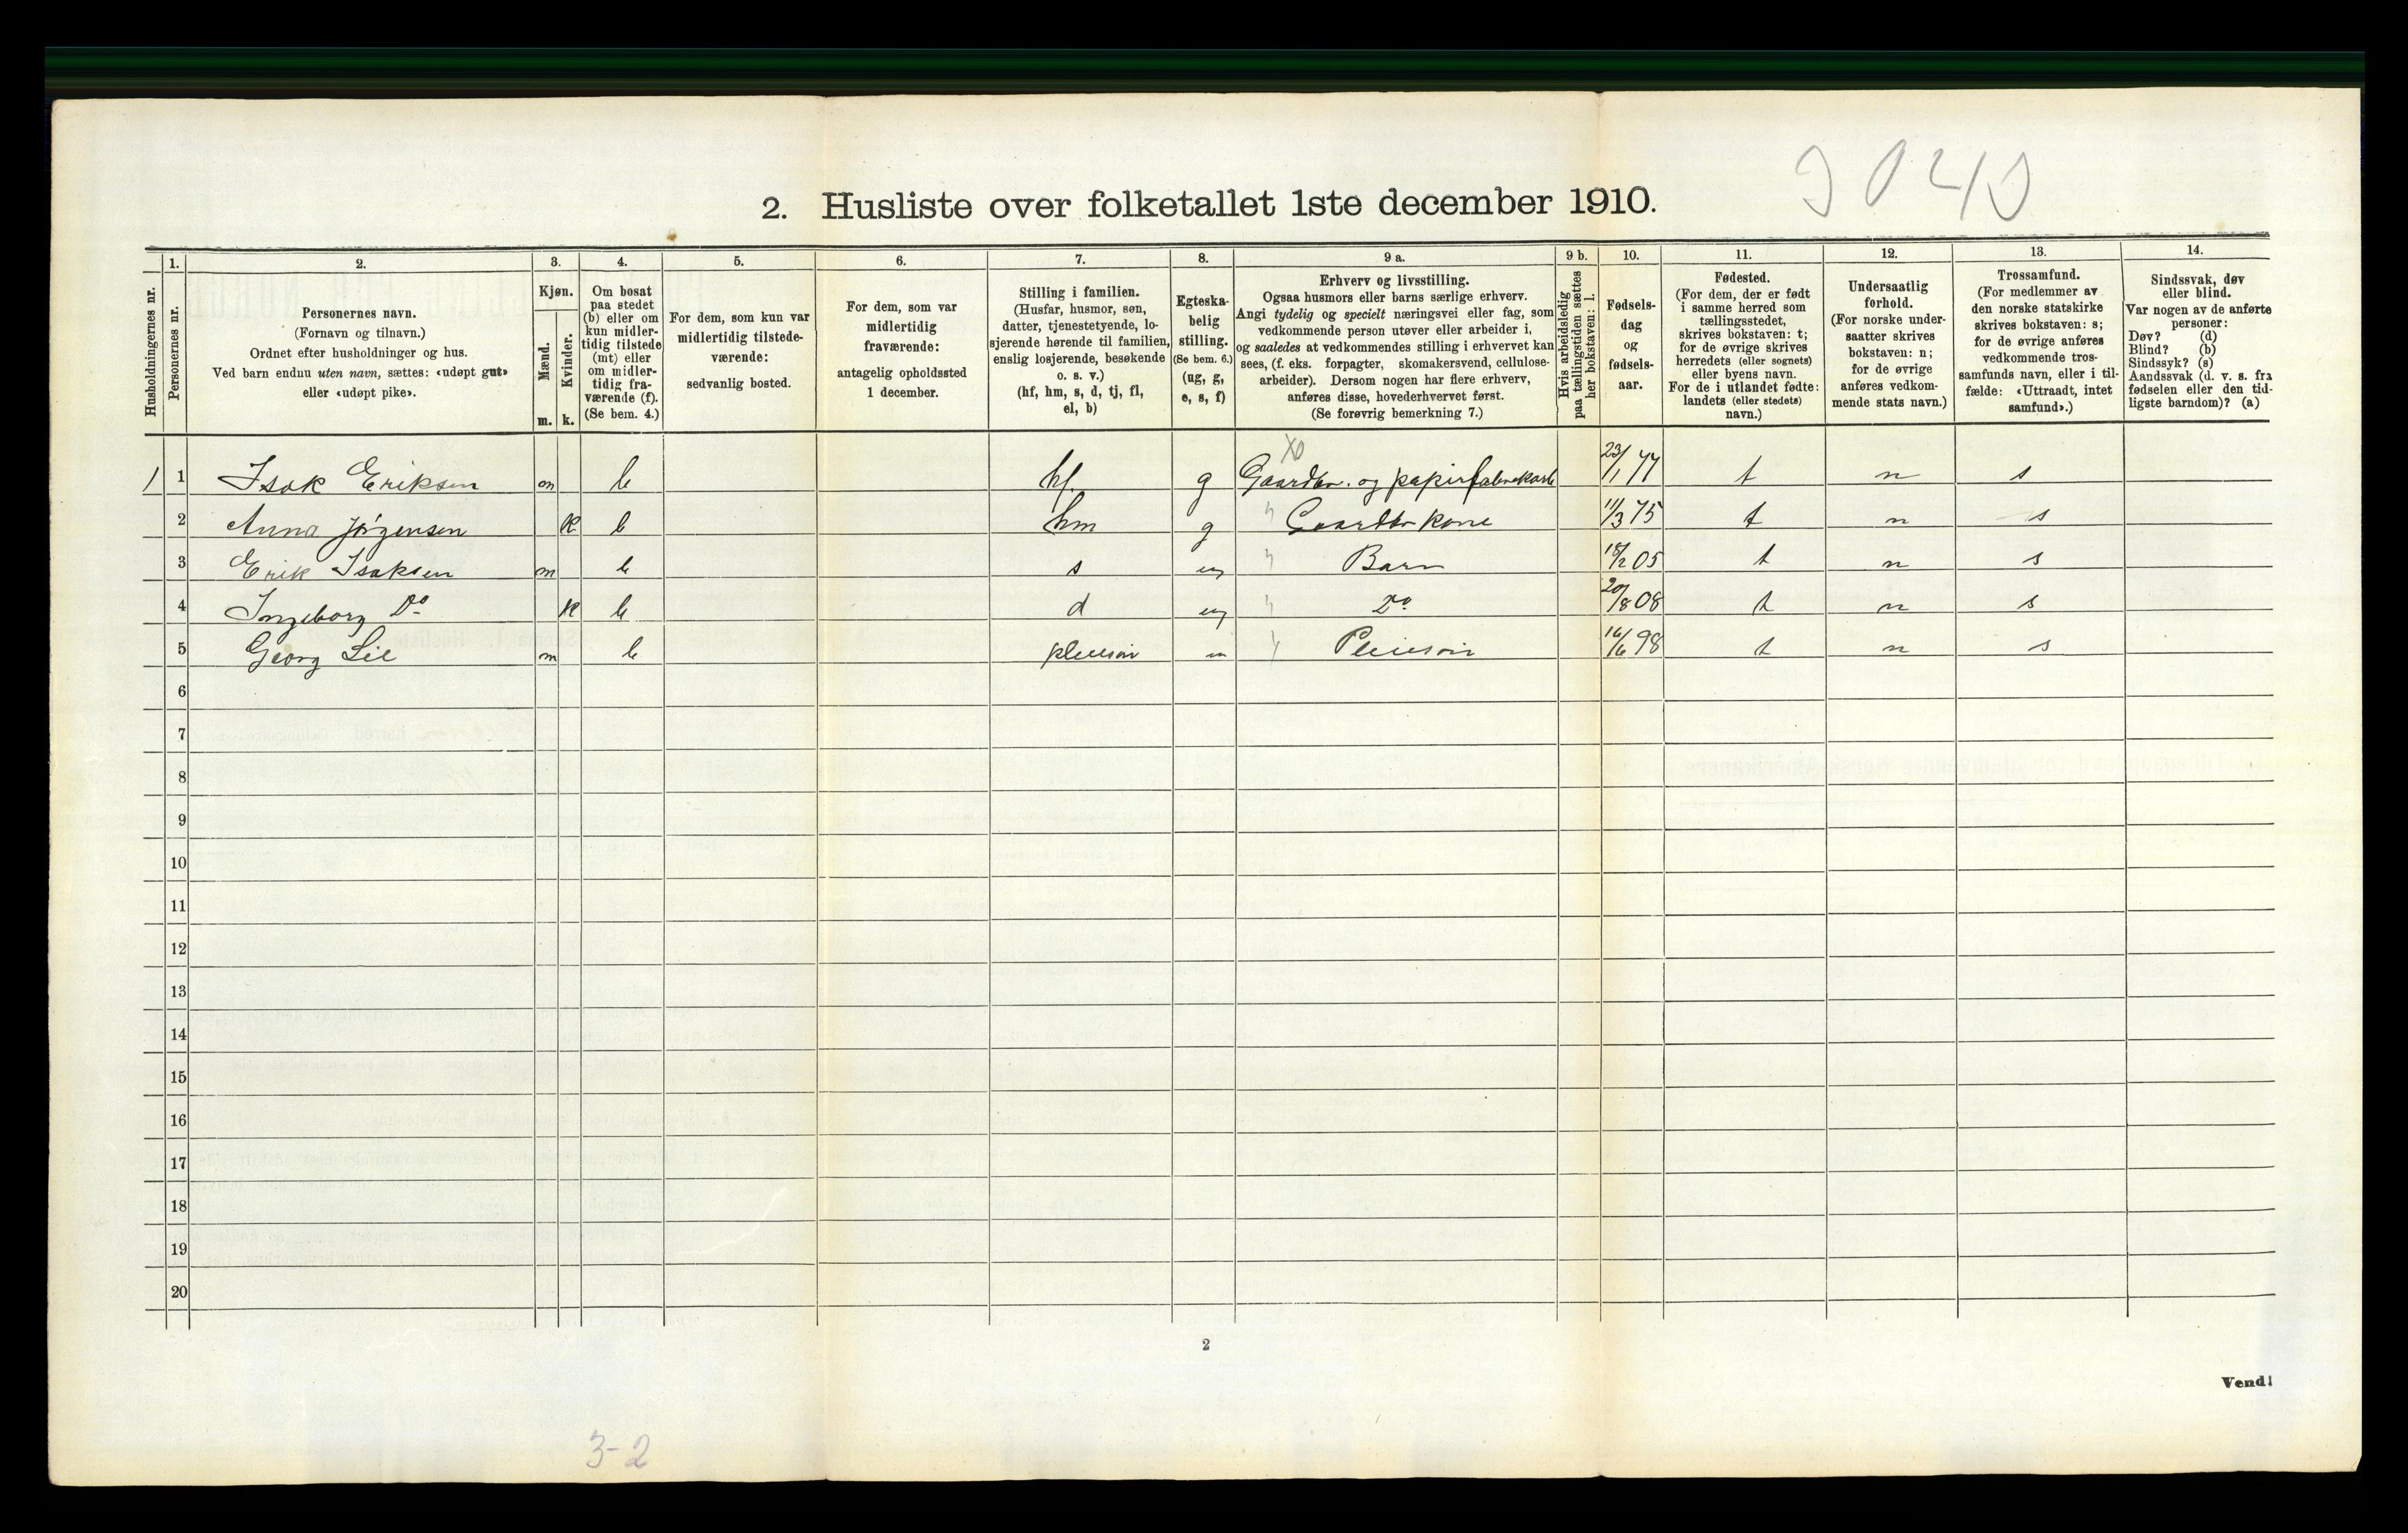 2. Husliste over folketallet 1ste december 1910.
Husholdningernes nr.
1.
Personernes nr.
2.
Personernes navn.
(Fornavn og tilnavn.)
Ordnet efter husholdninger og hus.
Ved barn endnu uten navn, sættes: «udøpt gut»
eller «udøpt pike».
3.
Kjøn.
Mænd.
Kvinder.
m. k.
4.
Om bosat
paa stedet
(b) eller om
kun midler-
tidig tilstede
(mt) eller
om midler-
tidig fra-
værende (f).
(Se bem. 4.)
5.
For dem, som kun var
midlertidig tilstede-
værende:
sedvanlig bosted.
6.
For dem, som var
midlertidig
fraværende:
antagelig opholdssted
1 december.
7.
Stilling i familien.
(Husfar, husmor, søn,
datter, tjenestetyende, lo-
sjerende hørende til familien,
enslig losjerende, besøkende
o. s. v.)
(hf, hm, s, d, tj, fl,
el, b)
8.
Egteska-
belig
stilling.
(Se bem. 6.)
(ug, g,
e, s, f)
9 a.
Erhverv og livsstilling.
Ogsaa husmors eller barns særlige erhverv.
Angi tydelig og specielt næringsvei eller fag, som
vedkommende person utøver eller arbeider i,
og saaledes at vedkommendes stilling i erhvervet kan
sees, (f. eks. forpagter, skomakersvend, cellulose-
arbeider). Dersom nogen har flere erhverv,
anføres disse, hovederhvervet først.
(Se forøvrig bemerkning 7.)
9 b.
Hvis arbeidsledig
paa tællingstiden sættes
her bokstaven: l.
10.
Fødsels-
dag
og
fødsels-
aar.
11.
Fødested.
(For dem, der er født
i samme herred som
tællingsstedet,
skrives bokstaven: t;
for de øvrige skrives
herredets (eller sognets)
eller byens navn.
For de i utlandet fødte:
landets (eller stedets)
navn.)
12.
Undersaatlig
forhold.
(For norske under-
saatter skrives
bokstaven: n;
for de øvrige
anføres vedkom-
mende stats navn.)
13.
Trossamfund.
(For medlemmer av
den norske statskirke
skrives bokstaven: s;
for de øvrige anføres
vedkommende tros-
samfunds navn, eller i til-
fælde: «Uttraadt, intet
samfund».)
14.
Sindssvak, døv
eller blind.
Var nogen av de anførte
personer:
Døv? (d)
Blind? (b)
Sindssyk? (s)
Aandssvak (d. v. s. fra
fødselen eller den tid-
ligste barndom)? (a)
1 1 Isak Eriksen m b hf g Gaardbr. og papirfabrikarb 23/1 77 t n s
2 Anna Jørgensen k b hm g Gaardbr kone 11/3 75 t n s
3 Erik Isaksen m b s ug Barn 18/2 05 t n s
4 Ingeborg Do k b d ug Do 20/8 08 t n s
5 Georg Lie m b pleiesøn Pleiesøn 16/6 98 t n s
6
7
8
9
10
11
12
13
14
15
16
17
18
19
20
2
Vend!
3-2